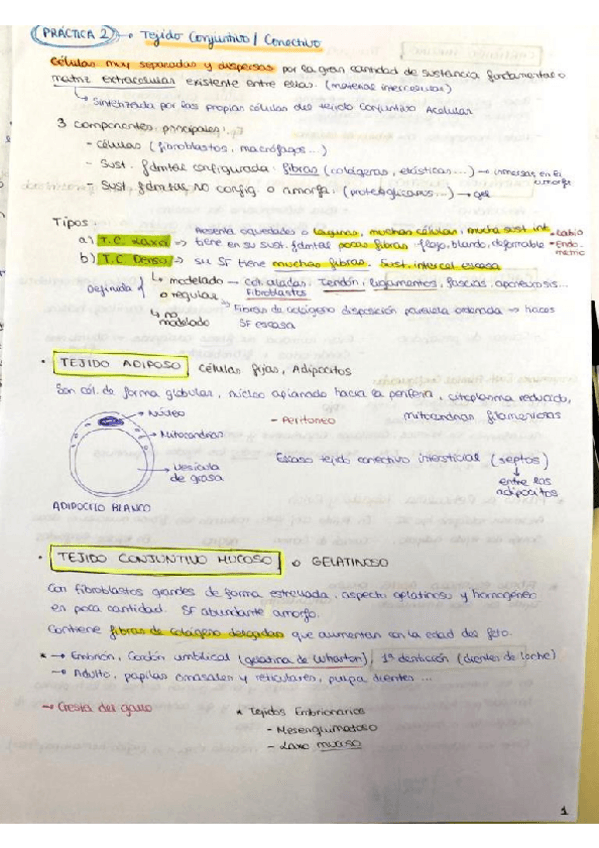 (PRÁCTICA 2) → Tejido Conjuntivo / Conectivo
Células muy separadas y dispersas por la gran cantidad de sustancia fundamental o
matriz extracelular existente entre ellas. (material intercelular)
↳ Sintetizada por las propias células del tejido conjuntivo Acelular
3 componentes principales:
- Células (fibroblastos, macrófagos...)
- Sust. fdmtal configurada: fibras (colágeras, elásticas...) → inmersas en el amorfa
- Sust. fdmtal no config. o amorfa. (proteoglicanos...) → gel
Tipos
presenta oquedades o lagunas, muchas células, mucha sust. int.
a) T.C. Laxo → tiene en su sust. fdmtal pocas fibras. flojo, blando, deformable
- Labio
- Endometrio
b) T.C. Denso → su SF tiene muchas fibras. Sust. intercel escasa
Definida
↳ modelado o regular
- cél. aladas. Tendón, ligamentos, fascias, aponeurosis...
fibroblastos
↳ Fibras de colágeno disposición paralela ordenada → haces
↳ no modelado
SF escasa
· TEJIDO ADIPOSO células fijas, Adipocitos
Son cél. de forma globular, núcleo aplanado hacia la periferia, citoplasma reducido,
mitocondrias filamentosas
→ Núcleo
→ Mitocondrias
→ Vesícula de grasa
- Peritoneo
Escaso tejido conectivo intersticial (septos)
↓
entre los adipocitos
ADIPOCITO BLANCO
· TEJIDO CONJUNTIVO MUCOSO o GELATINOSO
Con fibroblastos grandes de forma estrellada. aspecto gelatinoso y homogéneo
en poca cantidad. SF abundante amorfo.
Contiene fibras de colágeno delgadas que aumentan con la edad del feto.
* → Embrión, Cordón umbilical (gelatina de Wharton), 1ª dentición (dientes de leche)
→ Adulto, papilas omasales y reticulares, pulpa dientes...
→ Cresta del gallo
* Tejidos Embrionarios
- Mesenquimatoso
- Laxo mucoso
1